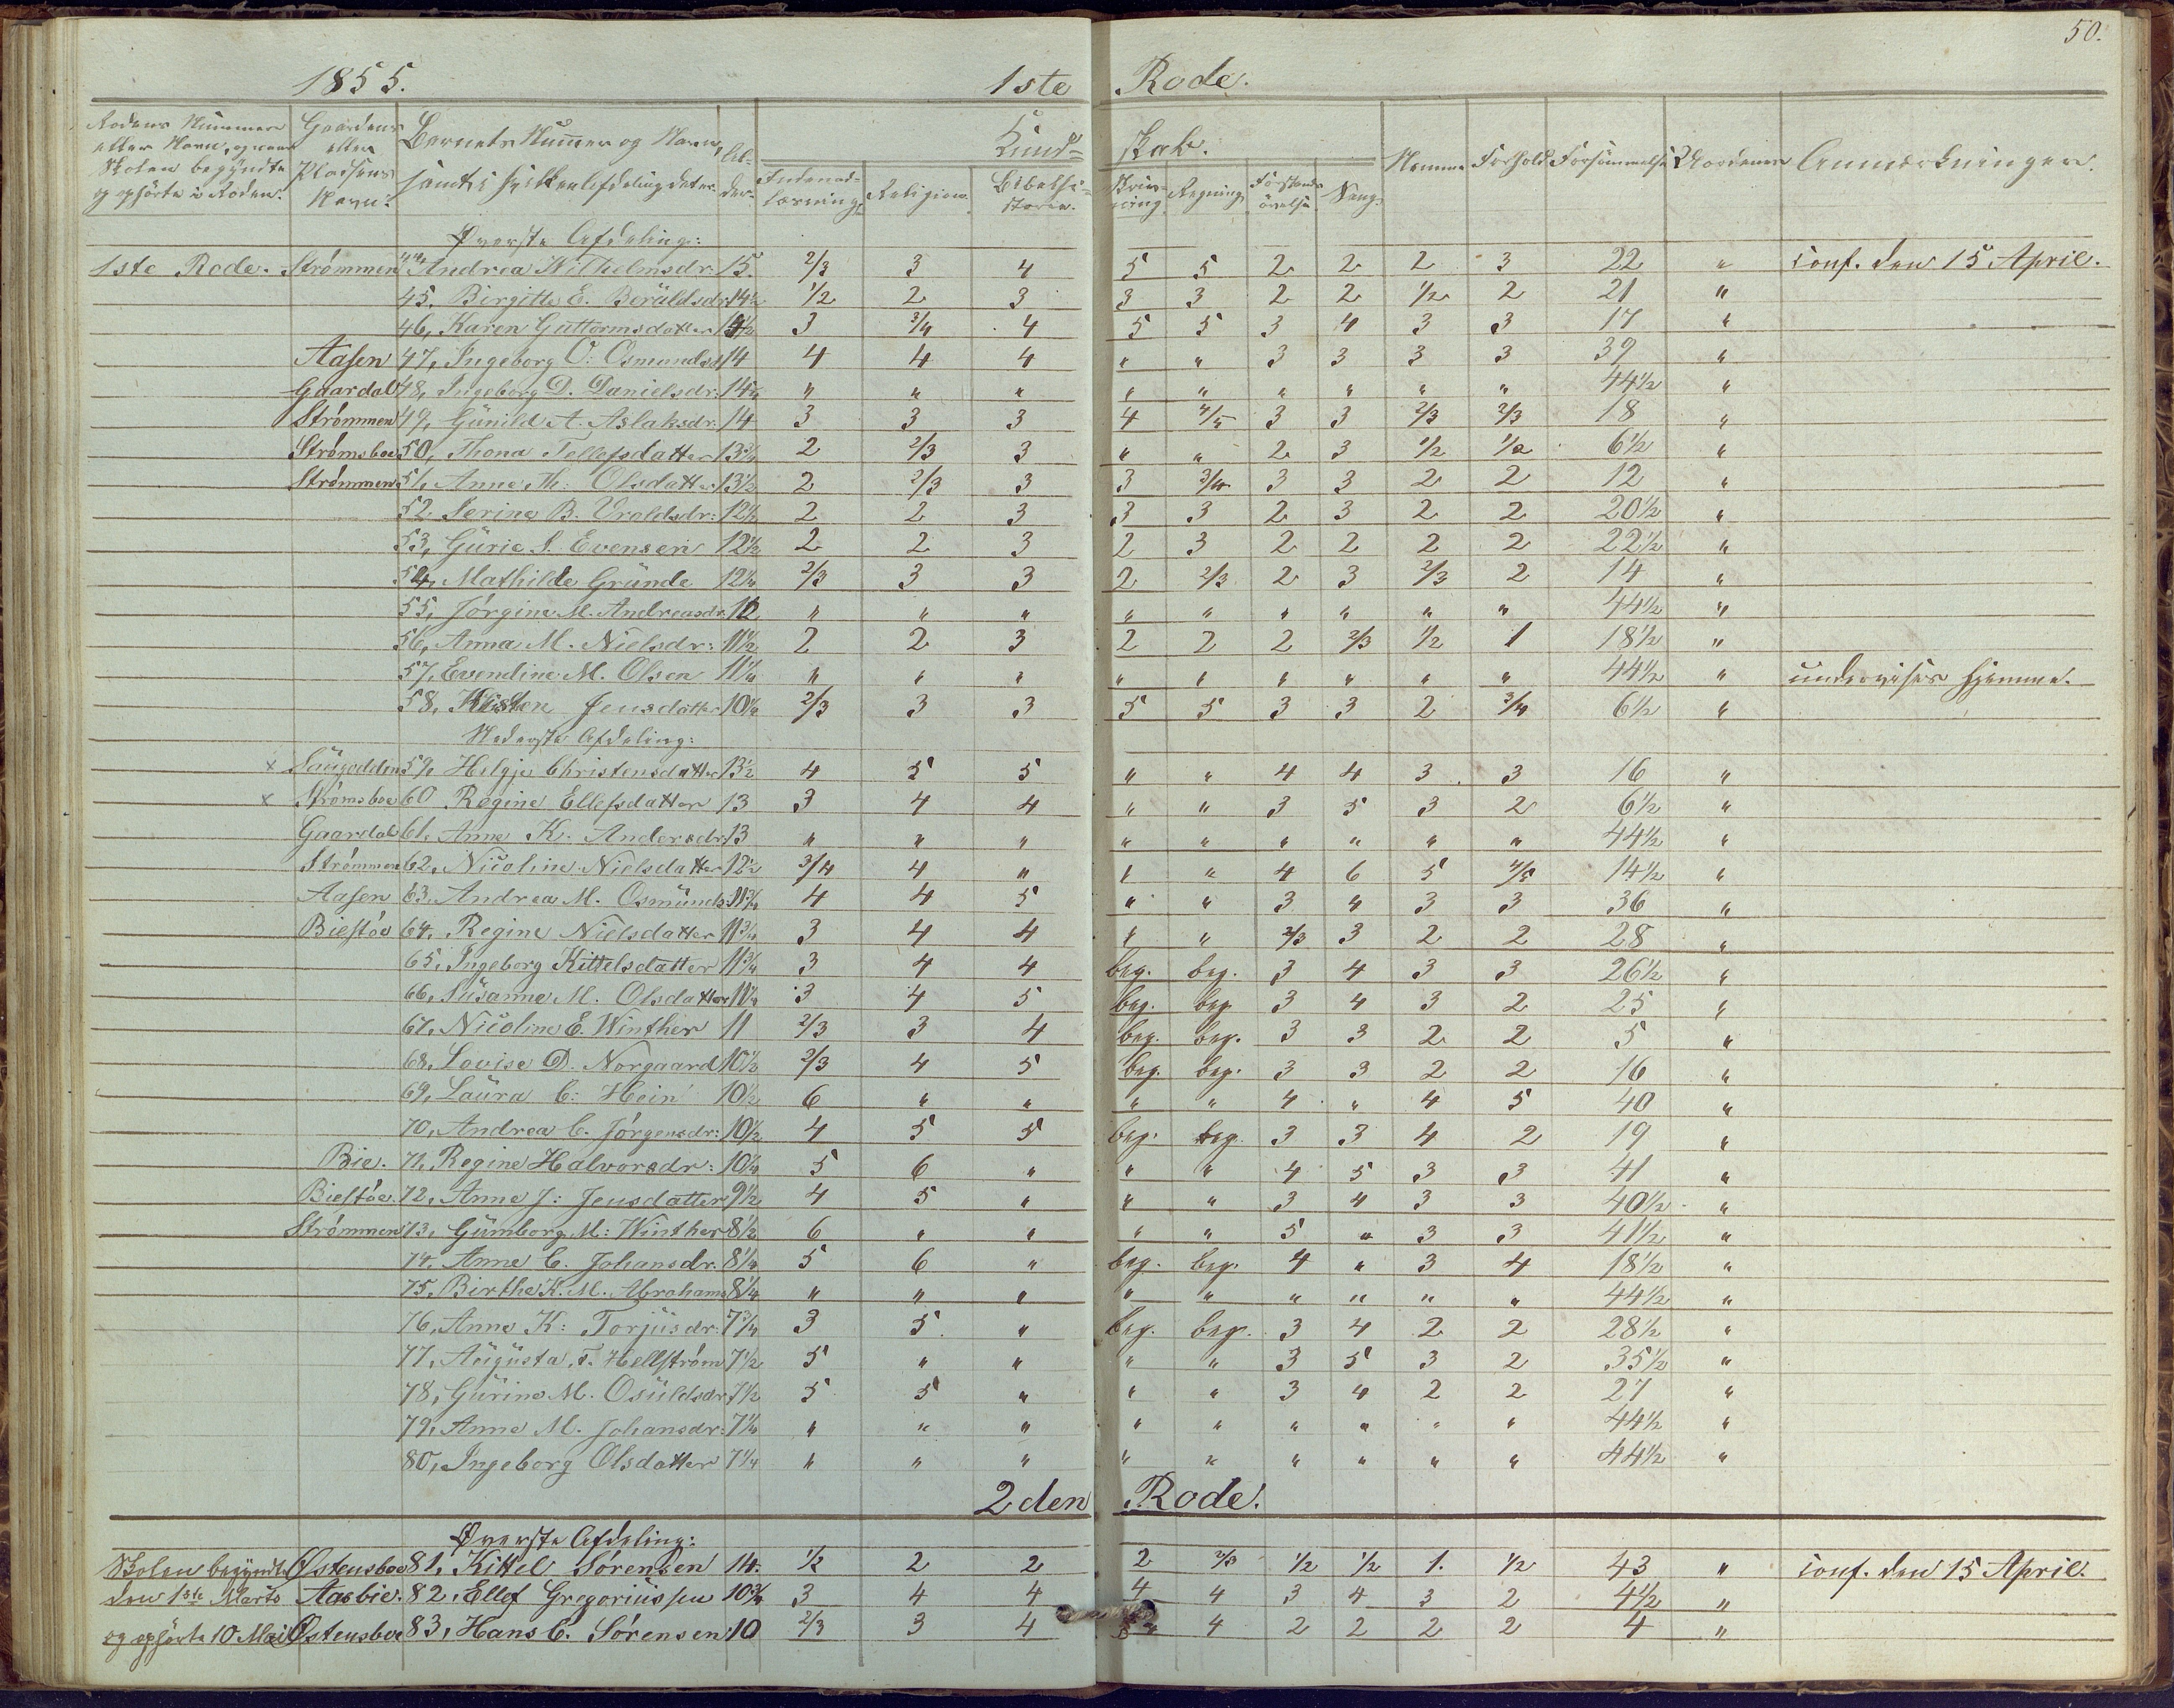 50.
1855. 1ste Rode.
Rodens Nummer eller Navn, og naar Skolen begyndte og ophörte i Roden.
Gaardens eller Pladsens Navn.
Barnets Numer og Navn,
Alder.
Kundskab.
Indenadlæsning.
Religion.
Bibelhistorie.
Skrivning
Regning
Forstandsövelse
Sang.
Nemme
Forhold
Forsömmelse
Anmærkninger.
Överste Afdeling:
1ste Rode. Strømmen 44, Andrea Wilhelmsdr: 15. 2/3 3 4 5 5 2 2 2 3 22 " conf. den 15 April.
45, Birgitte E. 14½ 1/2 2 3 3 3 2 2 1/2 2 21 "
46, Karen Guttormsdatter 14½ 3 3/4 4 5 5 3 4 3 3 17 "
Aasen 47, Ingeborg O. Osmundsd 14 4 4 4 " " 3 3 3 3 39 "
Gaardal 48, Ingeborg D. Danielsdr: 14¼ " " " " " " " " " 44½ "
Strømmen 49, Günild A. Aslaksdr: 14 3 3 3 4 4/5 3 3 2/3 2/3 18 "
Strømsboe 50, Thona Tellefsdatter 13¾ 2 2/3 3 " " 2 3 1/2 1/2 6½ "
Strømmen 51, Anne M: Olsdatter 13½ 2 2/3 3 3 3/4 3 3 2 2 12 "
52 Serine B. 12½ 2 2 3 3 3 2 3 2 2 20½ "
53, Gürie S. Evensen 12½ 2 2 3 2 3 2 2 2 2 22½ "
54, Mathilde Gründe 12¼ 2/3 3 3 2 2/3 2 3 2/3 2 14 "
55, Jörgine M. Andreasdr. 12 " " " " " " " " " 44½ "
56, Anna M. Nielsdr: 11½ 2 2 3 2 2 2 2/3 1/2 1 18½ "
57, Evendine M. Olsen 11¼ " " " " " " " " " 44½ " undervises hjemme.
58, Jensdatter 10¼ 2/3 3 3 5 5 3 3 2 3/4 6½ "
Nederste Afdeling:
x Saugodden 59, Helgje Christensdatter 13½ 4 5 5 " " 4 4 3 3 16 "
x Strømsboe 60 Regine Ellefsdatter 13 3 4 4 " " 3 5 3 2 6½ "
Gaardal 61. Anne K. Andersdr. 13 " " " " " " " " " 44½ "
Strømmen 62, Nicoline Nielsdatter 12½ 3/4 4 " " " 4 6 5 4/5 14½ "
Aasen 63, Andrea M. Osmünds: 11¾ 4 4 5 " " 3 " 3 3 36 "
Biestöe 64, Regine Nielsdatter 11¾ 3 4 4 " " 2/3 3 2 2 28 "
65, Ingeborg Kittelsdatter 11¾ 3 4 4 beg. beg. 3 4 3 3 26½ "
66, Süsanne M. Olsdatter 11¼ 3 4 5 beg. beg 3 4 3 2 25 "
67, Nicoline E. Winther 11 2/3 3 4 beg. beg. 3 3 2 2 5 "
68, Lovise D. Norgaard 10½ 2/3 4 5 beg. beg. 3 3 2 2 16 "
69, Laüra C: Hein 10½ 6 " " " " 4 " 4 5 40 "
70, Andrea C. Jörgensdr: 10½ 4 5 5 beg. beg. 3 3 4 2 19 "
Bie. 71, Regine Halvorsdr: 10¼ 5 6 " " " 4 5 3 3 41 "
Biestöe. 72, Anne J: Jensdatter 9½ 4 5 " " " 3 4 3 3 40½ "
Strømmen 73, Gümborg M: Winther 8½ 6 " " " " 5 " 3 3 41½ "
74, Anne C. Johansdr. 8½ 5 6 " beg. beg. 4 " 3 4 18½ "
75, Birthe K. M. Abrahams 8¼ " " " " " " " " " 44½ "
76, Anne K: Torjüsdr: 7¾ 3 5 " beg. beg. 3 4 2 2 28½ "
77, Augüsta F. Hellström 7½ 5 " " " " 3 5 3 2 35½ "
78, Gürine M. Osüldsdr 7½ 5 5 " " " 3 4 2 2 27 "
79, Anne M. Johansdr: 7¼ " " " " " " " " " 44½ "
80, Ingeborg Olsdatter 7¼ " " " " " " " " " 44½ "
2den Rode.
Överste Afdeling:
Skolen begyndte Østensboe 81, Kittel Sörensen 14. 1/2 2 2 2 2/3 1/2 1/2 1. 1/2 43 " conf. den 15 April.
den 1ste Marts Aasbie. 82, Ellef Gregoriüssen 10¾ 3 4 4 4 4 3 4 3 2 4½ "
og ophörte 10 Mai Østensboe 83, Hans C. Sörensen 10 2/3 3 4 4 2 2 2 2 4 "